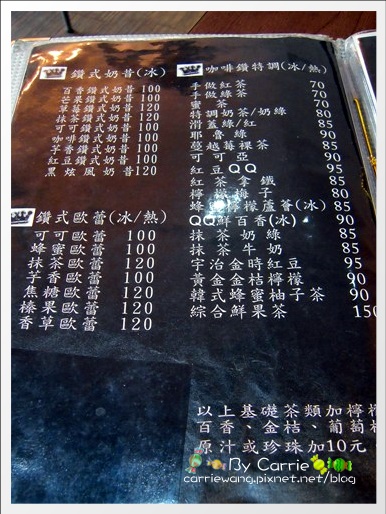 鑽式奶昔(冰)
百香鑽式奶昔 100
芒果鑽式奶昔 100
草莓鑽式奶昔 120
抹茶鑽式奶昔 120
可可鑽式奶昔 100
咖啡鑽式奶昔 100
芋香鑽式奶昔 100
紅豆鑽式奶昔 100
黑炫風奶昔 120
鑽式歐蕾(冰/熱)
可可歐蕾 100
蜂蜜歐蕾 100
抹茶歐蕾 120
芋香歐蕾 100
焦糖歐蕾 120
榛果歐蕾 120
香草歐蕾 120
咖啡鑽特調(冰/熱)
手做紅茶 70
手做綠茶 70
蜜茶 70
特調奶茶/奶綠 80
滑蓋綠/紅 85
耶魯綠 90
蔓越莓粿茶 85
可可亞 90
紅豆QQ 85
紅茶拿鐵 85
檸檬梅子 80
蜂蜜檸檬蘆薈(冰) 85
QQ鮮百香(冰) 90
抹茶奶綠 85
抹茶牛奶 85
宇治金時紅豆 95
黃金金桔檸檬 90
韓式蜂蜜柚子茶 90
綜合鮮果茶 150
以上基礎茶類加檸檬
百香、金桔、葡萄柚
原汁或珍珠加10元
By Carrie
carriewang.pixnet.net/blog